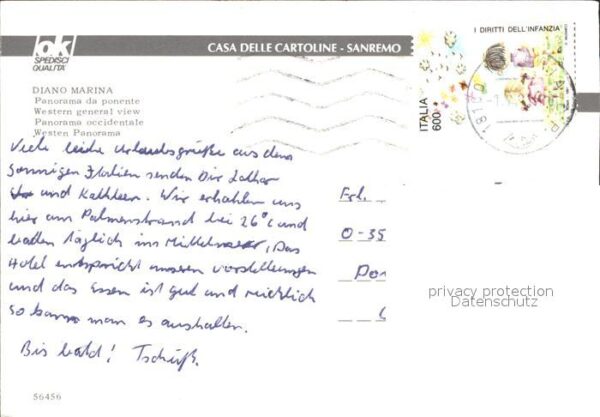 ok
SPEDISCI
QUALITA'
CASA DELLE CARTOLINE - SANREMO
I DIRITTI DELL'INFANZIA
ITALIA
600
DIANO MARINA
Panorama da ponente
Western general view
Panorama occidentale
Westen Panorama
Viele liebe Urlaubsgrüße aus dem
sonnigen Italien senden Dir Lothar
und Kathleen. Wir erhohlen uns
hier am Palmenstrand bei 26°C und
baden täglich im Mittelmeer. Das
Hotel entspricht unseren Vorstellungen
und das Essen ist gut und reichlich
so kann man es aushalten.
Bis bald! Tschüß.
Frl.
O-35
Dor
privacy protection
Datenschutz
56456